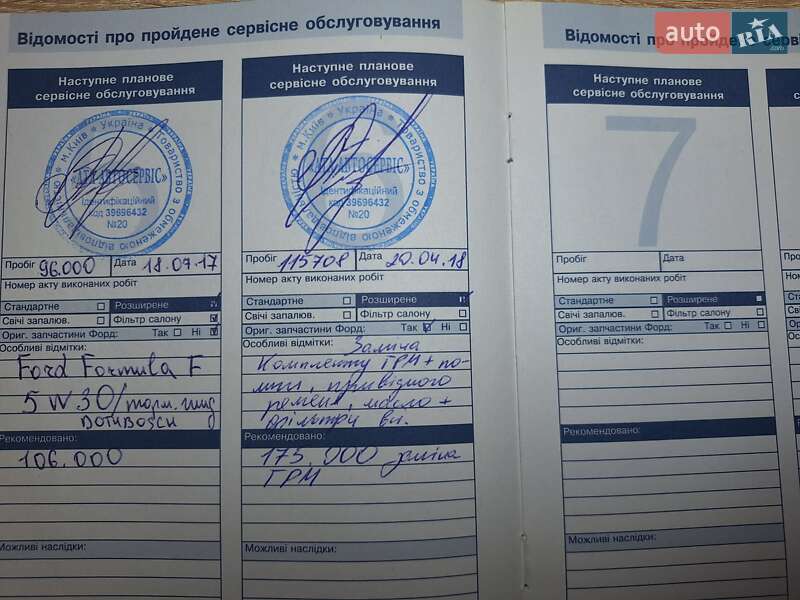 Відомості про пройдене сервісне обслуговування
Наступне планове
сервісне обслуговування
м.Київ * Україна * Товариство з обмеженою відповідальністю
«АТЛ АВТОСЕРВІС»
Ідентифікаційний
код 39696432
№20
Пробіг 96.000 Дата 18.07.17
Номер акту виконаних робіт
Стандартне Розширене
Свічі запалюв. Фільтр салону
Ориг. запчастини Форд: Так Ні
Особливі відмітки:
Ford Formula F
5W30/торм.
DOT4 BOSCH
Рекомендовано:
106.000
Можливі наслідки:
Наступне планове
сервісне обслуговування
м.Київ * Україна * Товариство з обмеженою відповідальністю
«АТЛ АВТОСЕРВІС»
Ідентифікаційний
код 39696432
№20
Пробіг 115708 Дата 20.04.18
Номер акту виконаних робіт
Стандартне Розширене
Свічі запалюв. Фільтр салону
Ориг. запчастини Форд: Так Ні
Особливі відмітки: Заміна
Комплекту ГРМ + по-
мпи, привідного
ременя, масло +
фільтри
Рекомендовано:
175.000 заміна
ГРМ
Можливі наслідки:
auto RIA.com
Відомості про пройдене
Наступне планове
сервісне обслуговування
7
Пробіг Дата
Номер акту виконаних робіт
Стандартне Розширене
Свічі запалюв. Фільтр салону
Ориг. запчастини Форд: Так Ні
Особливі відмітки:
Рекомендовано:
Можливі наслідки: